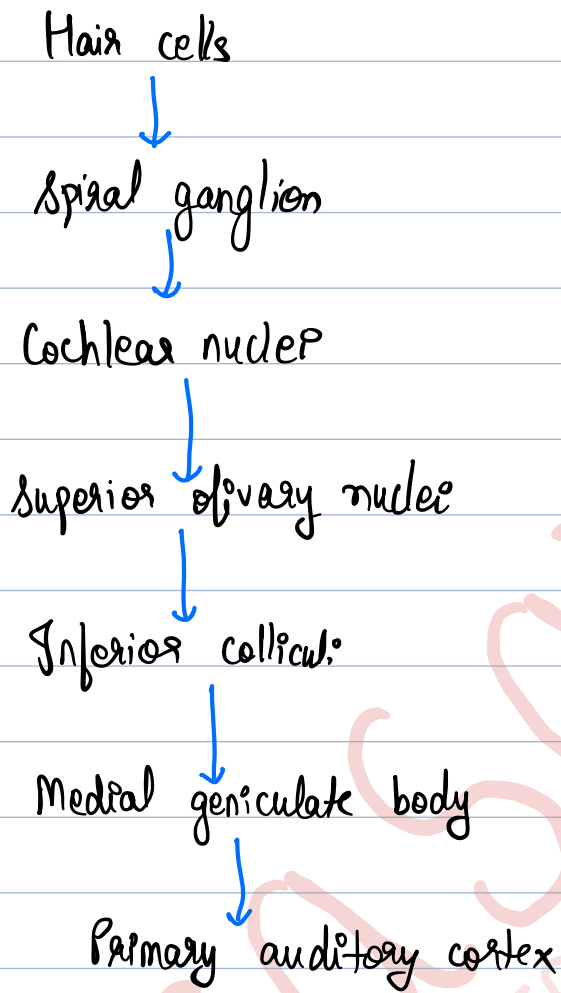 Hair cells
Spiral ganglion
Cochlear nuclei
Superior olivary nuclei
Inferior colliculi
Medial geniculate body
Primary auditory cortex